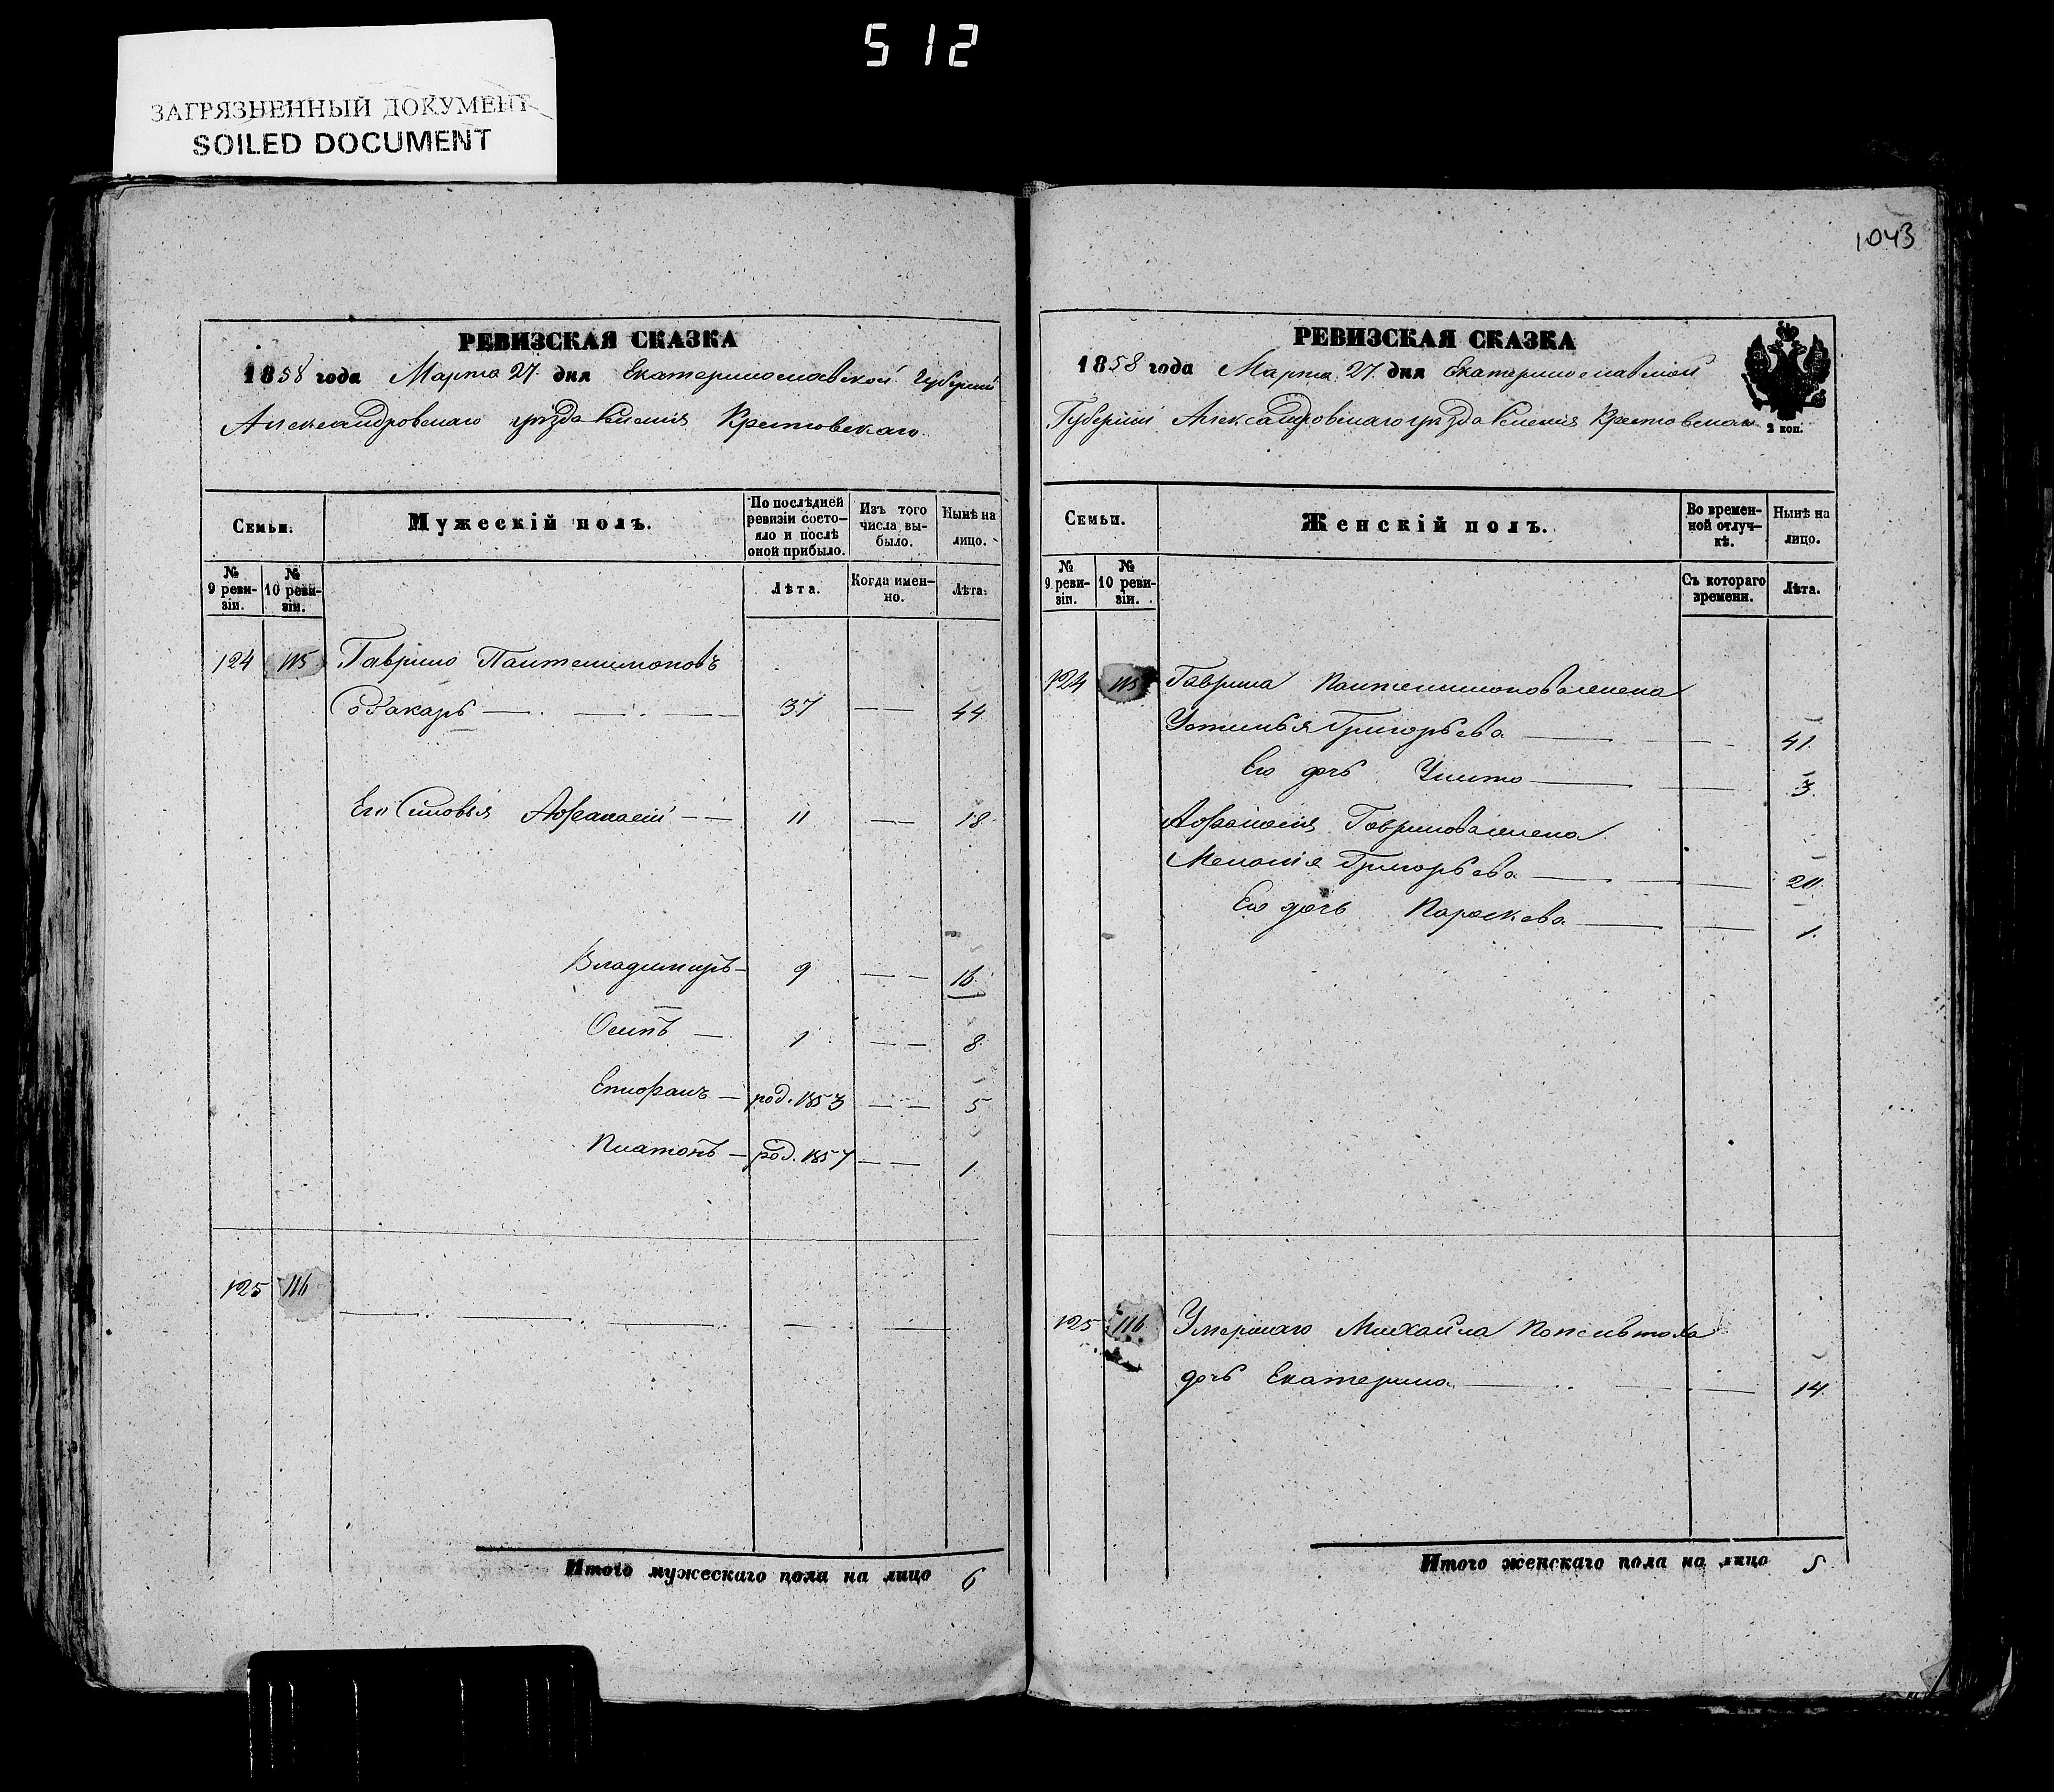 512
ЗАГРЯЗНЕННЫЙ ДОКУМЕНТ
SOILED DOCUMENT
РЕВИЗСКАЯ СКАЗКА
1858 года Марта 27 дня Екатеринославской Губерніи
Александровскаго уѣзда Селенія Крестовскаго.
Семьи.
Мужескій полъ.
По послѣдней ревизіи состояло и послѣ оной прибыло.
Изъ того числа выбыло.
Нынѣ на лицо.
№ 9 ревизіи.
№ 10 ревизіи.
Лѣта.
Когда именно.
Лѣта.
124 115 Гаврило Пантелимоновъ
37 44
Его Сыновья Афанасій 11 18
Владимиръ 9 16
Осипъ 1 8
Епифанъ род. 1853 5
Платонъ род. 1857 1
125 116
Итого мужескаго пола на лицо 6
1043
РЕВИЗСКАЯ СКАЗКА
1858 года Марта 27 дня Екатеринославской
Губерніи Александровскаго уѣзда Селенія Крестовскаго
2 коп.
Семьи.
Женскій полъ.
Во временной отлучкѣ.
Нынѣ на лицо.
№ 9 ревизіи.
№ 10 ревизіи.
Съ котораго времени.
Лѣта.
124 115 Гаврила Пантелимонова жена
Устинья Григорьева 41
Его дочь 3
Афанасія Гаврилова жена
Меланія Григорьева 20
Его дочь Параскева 1
125 116 Умершаго Михайла
дочь Екатерина 14
Итого женскаго пола на лицо 5